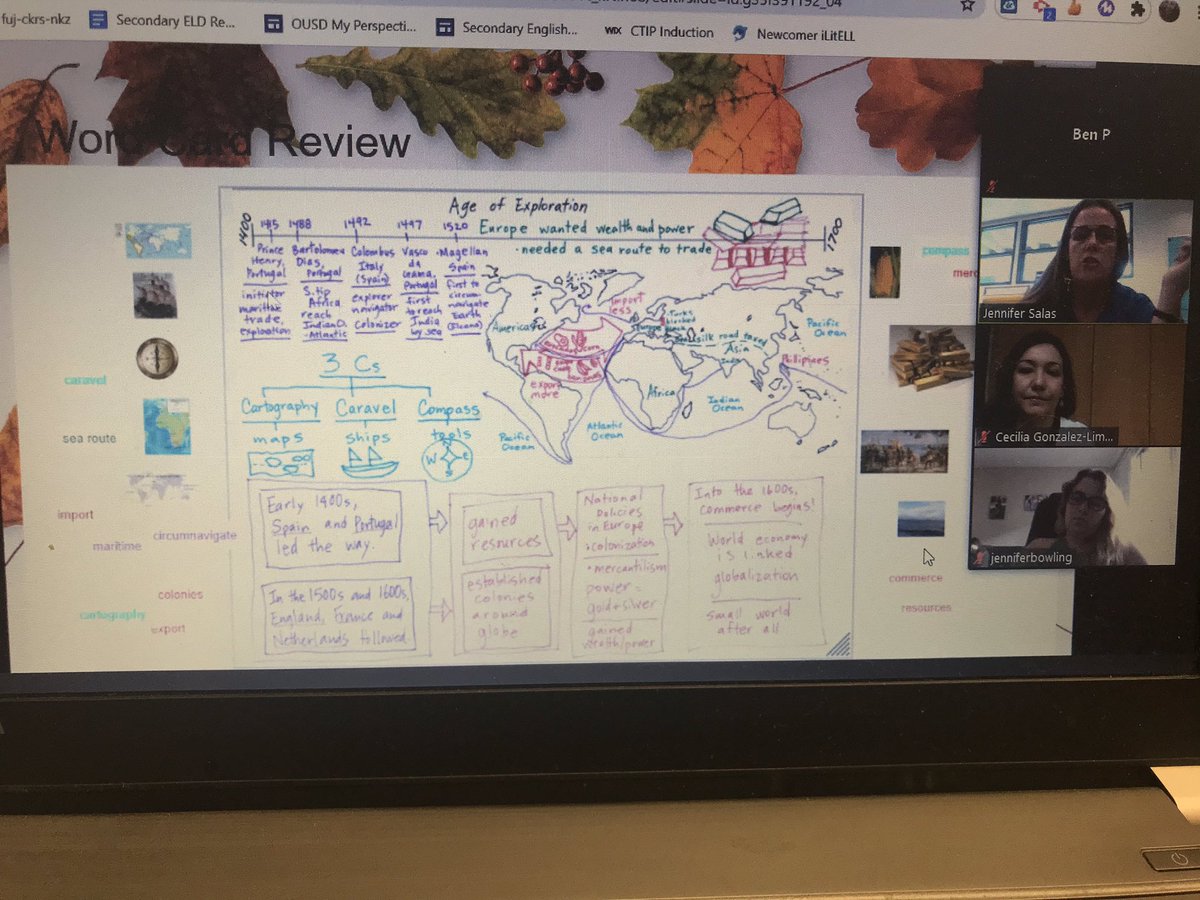 fuj-ckrs-nkz
Secondary ELD Re...
OUSD My Perspecti...
Secondary English...
WiX CTIP Induction
Newcomer iLitELL
Word Card Review
Age of Exploration
1400
1415
1488
1492
1497
1520
1700
Europe wanted wealth and power
• needed a sea route to trade
Prince
Henry,
Portugal
initiator
maritime
trade,
exploration
Bartolomeu
Dias,
Portugal
S. tip
Africa
reach
Indian O.
-Atlantic
Colombus
Italy
(Spain)
explorer
navigator
colonizer
Vasco
da
Gama,
Portugal
first
to reach
India
by sea
Magellan
Spain
first to
circum-
navigate
Earth
3 Cs
Cartography
Caravel
Compass
maps
ships
tools
W
E
Americas
import
less
export
more
Europe
Turks
blocked
silk road taxed
Asia
India
Africa
Philipines
Pacific
Ocean
Indian
Ocean
Atlantic
Ocean
Pacific
Ocean
Early 1400s,
Spain and Portugal
led the way.
In the 1500s and 1600s,
England, France and
Netherlands followed.
gained
resources
established
colonies
around
globe
National
Policies
in Europe
• colonization
• mercantilism
power =
gold + silver
gained
wealth/power
Into the 1600s,
commerce begins!
World economy
is linked
globalization
small world
after all
caravel
sea route
import
maritime
circumnavigate
colonies
cartography
export
compass
merc
commerce
resources
Ben P
Jennifer Salas
Cecilia Gonzalez-Lim...
jenniferbowling